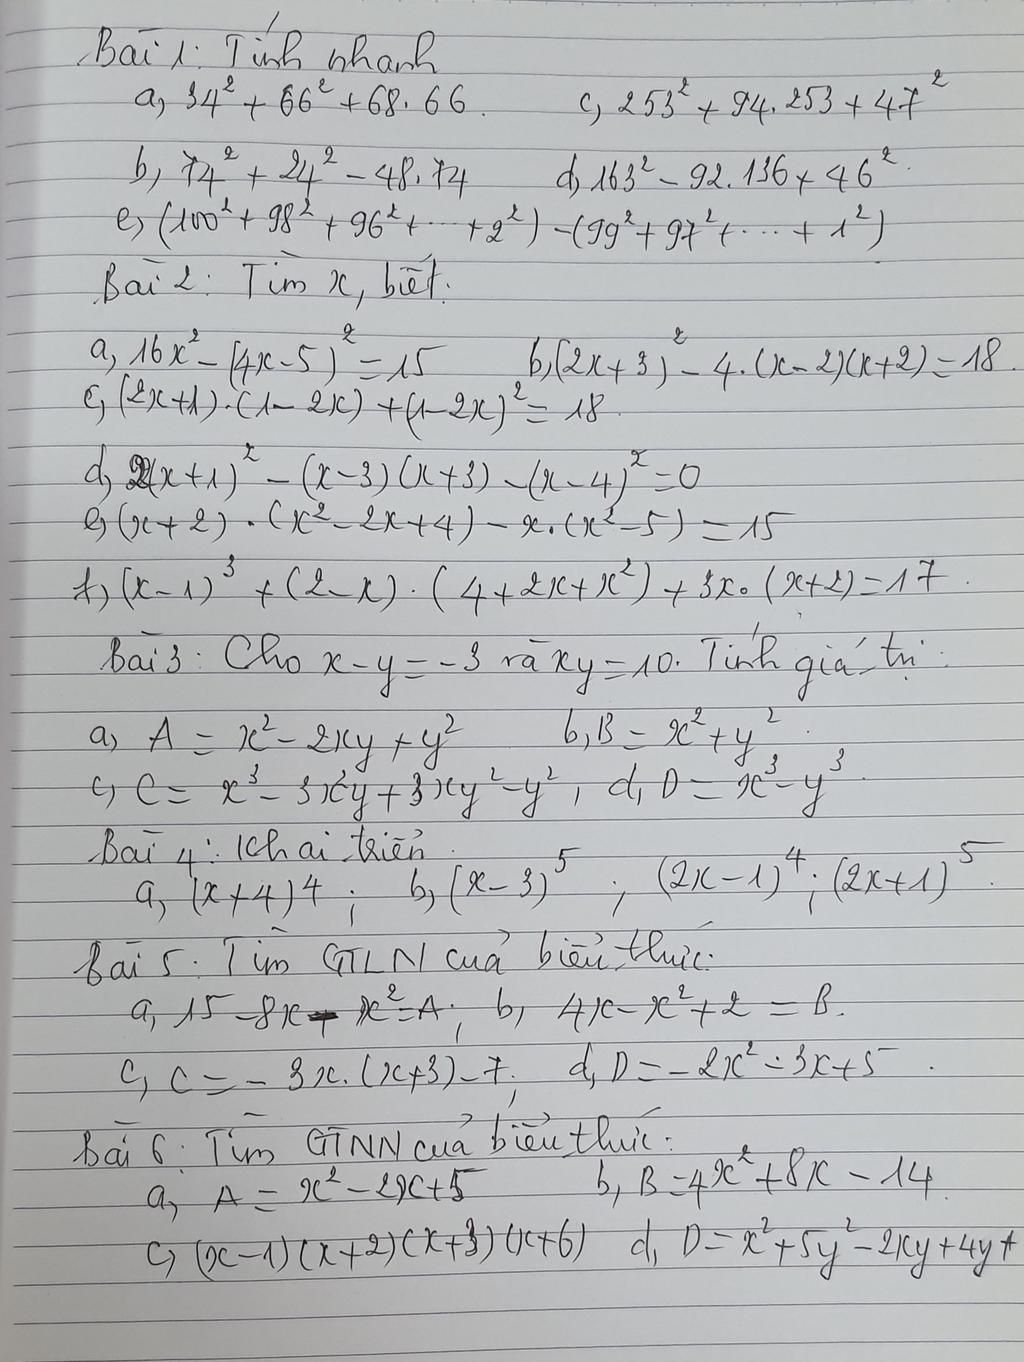 Bài 1: Tính nhanh
a, 34² + 66² + 68.66 c, 253² + 94.253 + 47²
b, 74² + 24² - 48.74 d, 163² - 92.136 + 46²
e, (100² + 98² + 96² + ... + 2²) - (99² + 97² + ... + 1²)
Bài 2: Tìm x, biết:
a, 16x² - (4x-5)² = 15 b, (2x+3)² - 4.(x-2)(x+2) = 18.
c, (2x+1).(1-2x) + (1-2x)² = 18.
d, 2(x+1)² - (x-3)(x+3) - (x-4)² = 0
e, (x+2).(x²-2x+4) - x.(x²-5) = 15
f, (x-1)³ + (2-x).(4+2x+x²) + 3x.(x+2) = 17.
Bài 3: Cho x-y = -3 và xy = 10. Tính giá trị:
a, A = x² - 2xy + y² b, B = x² + y².
c, C = x³ - 3x²y + 3xy² - y², d, D = x³ - y³.
Bài 4: Khai triển.
a, (x+4)4; b, (x-3)⁵; (2x-1)⁴; (2x+1)⁵.
Bài 5: Tìm GTLN của biểu thức:
a, 15 - 8x - x² = A; b, 4x - x² + 2 = B.
c, C = - 3x.(x+3) - 7; d, D = -2x² - 3x + 5.
Bài 6: Tìm GTNN của biểu thức:
a, A = x² - 2x + 5 b, B = 4x² + 8x - 14.
c, (x-1)(x+2)(x+3)(x+6) d, D = x² + 5y² - 2xy + 4y +